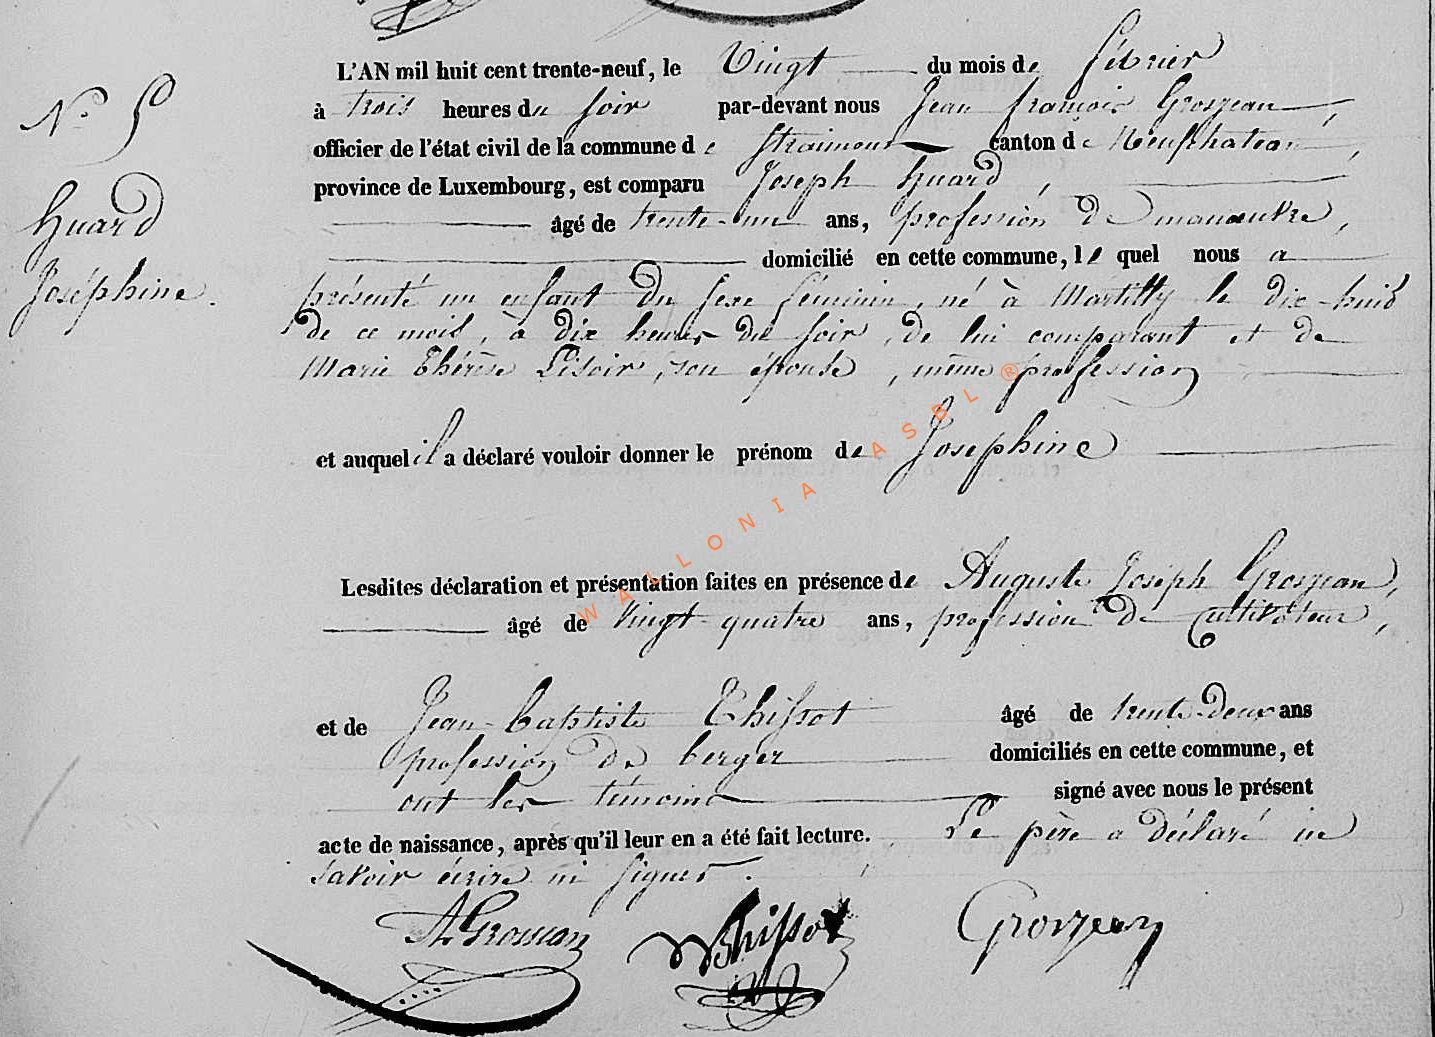 N° 5
Huard
Joséphine.
L'AN mil huit cent trente-neuf, le Vingt du mois de février
à trois heures du soir par-devant nous Jean françois Grosjean,
officier de l'état civil de la commune de Straimont canton de Neufchateau,
province de Luxembourg, est comparu Joseph Huard,
âgé de trente-un ans, profession de manœuvre,
domicilié en cette commune, le quel nous a
présenté un enfant du sexe féminin, né à Martilly le dix-huit
de ce mois, à dix heures du soir, de lui comparant et de
Marie Thérèse Pisoir, son épouse, même profession
et auquel il a déclaré vouloir donner le prénom de Josephine
Lesdites déclaration et présentation faites en présence de Auguste Joseph Grosjean,
âgé de Vingt-quatre ans, profession de Cultivateur,
et de Jean-baptiste Thissot âgé de trente-deux ans
profession de berger domiciliés en cette commune, et
ont les témoins signé avec nous le présent
acte de naissance, après qu'il leur en a été fait lecture. Le père a déclaré ne
savoir écrire ni signer.
A. Grosjean Thissot Grosjean
WALLONIA ASBL ®